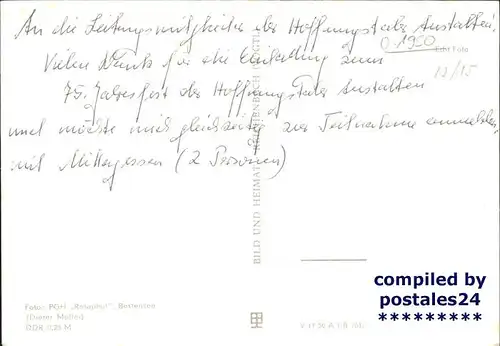 An die Leitungsmitglieder der Hoffnungstaler Anstalten,
0 1950
Echt Foto
Vielen Dank für die Einladung zum
12/15
75. Jahresfest der Hoffnungstaler Anstalten
und möchte mich gleichzeitig zur Teilnahme anmelden,
mit Mittagessen (2 Personen)
BILD UND HEIMAT REICHENBACH (VOGTL)
Foto: PGH „Rotophot", Bestensee
(Dieter Möller)
DDR 0,20 M
compiled by
postales24
*********